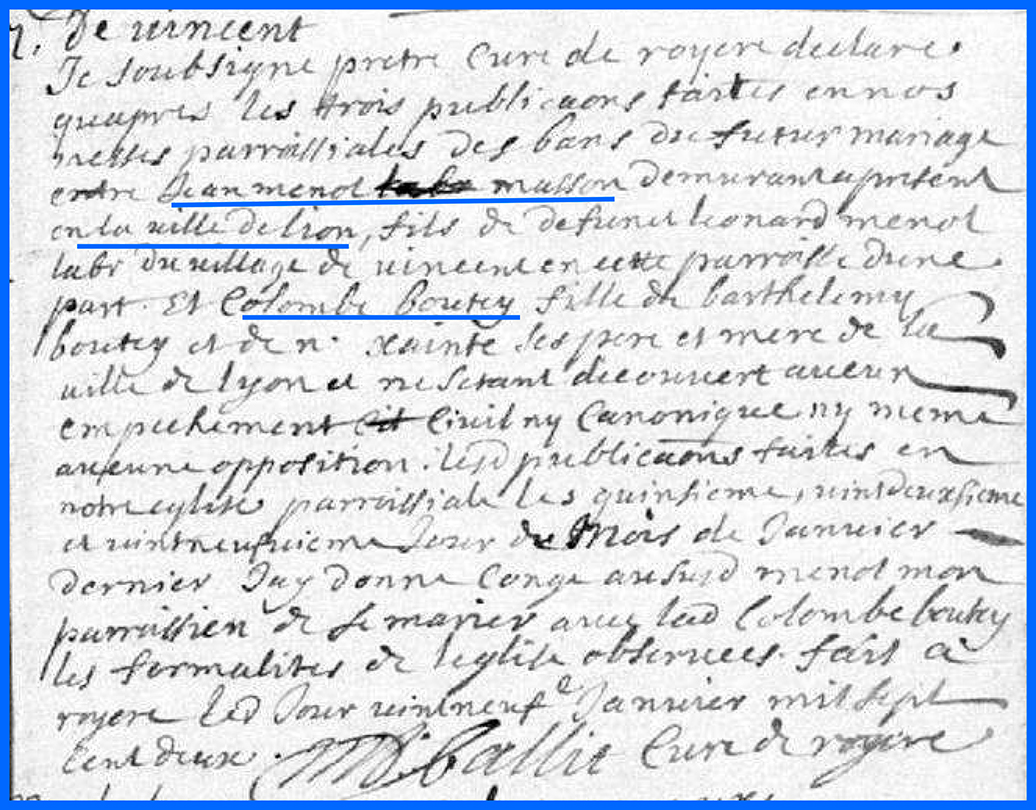 De vincent
Je soubsigne pretre Cure de royere declare
quapres les trois publicaons faites en nos
messes parroissiales des bans du futur mariage
entre Jean menot labr masson demurant apresent
en la ville de lion, fils de defunct leonard menot
labr du village de vincent en cette parroisse dune
part. Et Colombe boutey fille de barthelemy
boutey et de n. xainte ses pere et mere de la
ville de lyon et ne setant decouvert aucun
empechement Cit Civil ny Canonique ny meme
aucune opposition. lesd publicaons faites en
notre eglise parroissiale les quinsieme, vintdeuxsieme
et vintneufvieme Jour du Mois de Janvier
dernier Jay donne Conge aususd menot mon
parroissien de se marier avec lad Colombe boutey
les formalites de leglise observees. fait a
royere led Jour vintneuf e Janvier mil sept
Cent deux. Callie Cure de royere